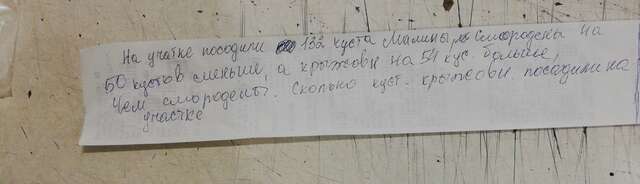 На учатке посодили 132 куста Малины, Смородены на
50 кустов меньше, а крыжовн на 54 кус. больше,
чем смородены. Сколько куст. крыжовн посадили на
участке